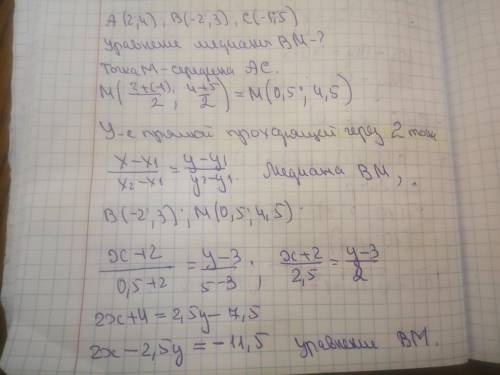 A(2;4), B(-2;3), C(-1;5)
Уравнение медианы BM-?
Точка M-середина AC.
M( (2+(-1))/2 ; (4+5)/2 ) = M(0,5; 4,5)
У-е прямой проходящей через 2 точки
(x-x₁)/(x₂-x₁) = (y-y₁)/(y₂-y₁). Медиана BM;
B(-2;3); M(0,5; 4,5).
(x+2)/(0,5+2) = (y-3)/(5-3); (x+2)/2,5 = (y-3)/2
2x+4=2,5y-7,5
2x-2,5y=-11,5 уравнение BM.